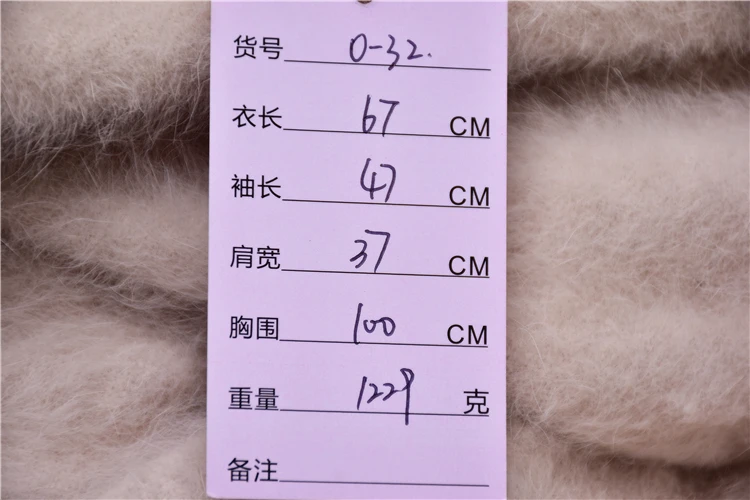 货号 0-32.
衣长 67 CM
袖长 47 CM
肩宽 37 CM
胸围 100 CM
重量 1229 克
备注